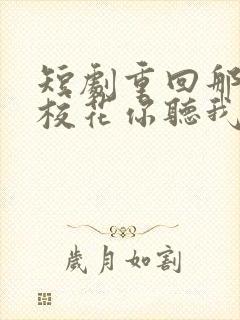 短劇重回那
校花你聽我
歲月如割